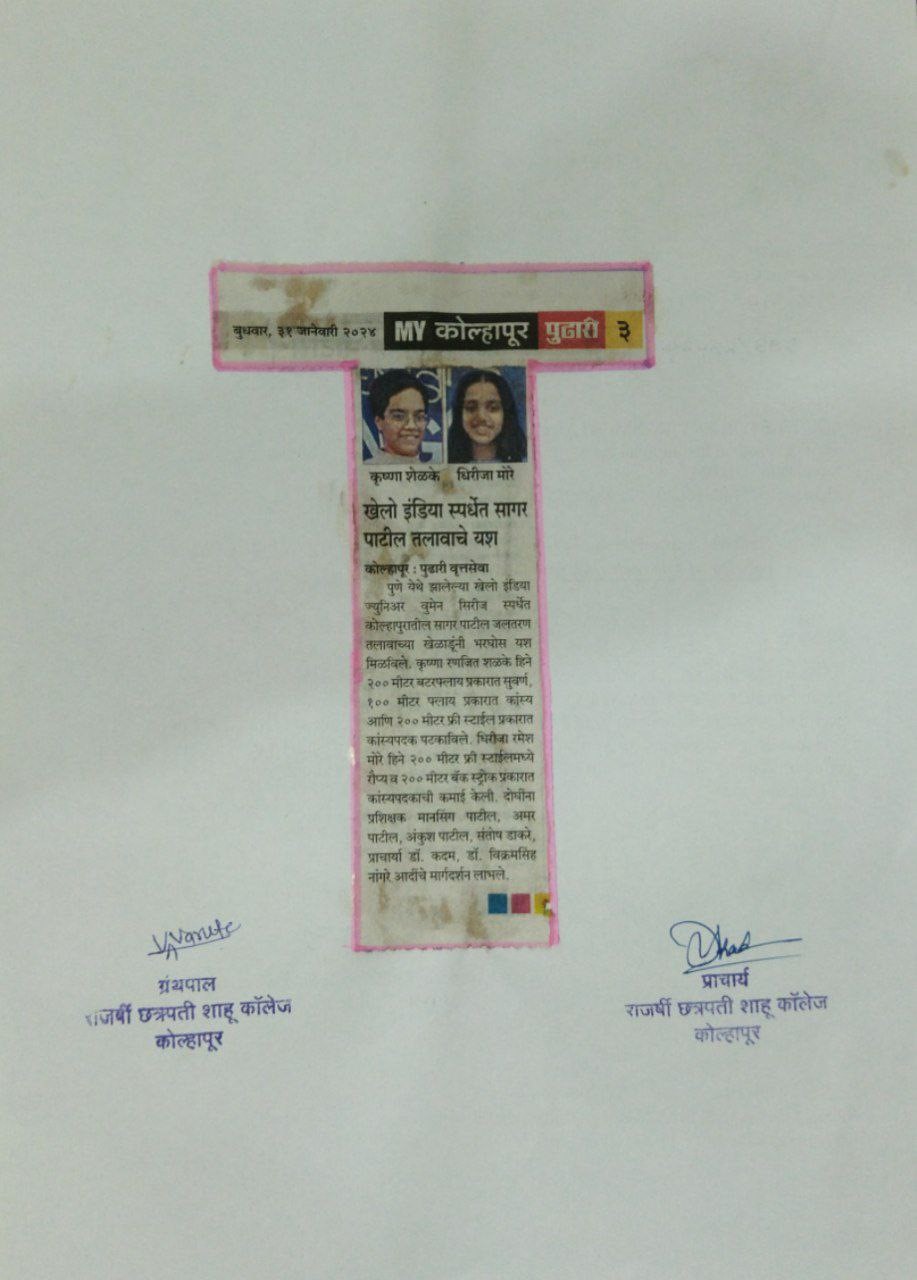 बुधवार, ३१ जानेवारी २०२४ MY कोल्हापूर पुढारी ३
कृष्णा शेळके धिरीजा मोरे
खेलो इंडिया स्पर्धेत सागर
पाटील तलावाचे यश
कोल्हापूर : पुढारी वृत्तसेवा
पुणे येथे झालेल्या खेलो इंडिया
ज्युनिअर वुमेन सिरीज स्पर्धेत
कोल्हापुरातील सागर पाटील जलतरण
तलावाच्या खेळाडूंनी भरघोस यश
मिळविले. कृष्णा रणजित शळके हिने
२०० मीटर बटरफ्लाय प्रकारात सुवर्ण,
१०० मीटर फ्लाय प्रकारात कांस्य
आणि २०० मीटर फ्री स्टाईल प्रकारात
कांस्यपदक पटकाविले. धिरीजा रमेश
मोरे हिने २०० मीटर फ्री स्टाईलमध्ये
रौप्य व २०० मीटर बॅक स्ट्रोक प्रकारात
कांस्यपदकाची कमाई केली. दोघींना
प्रशिक्षक मानसिंग पाटील, अमर
पाटील, अंकुश पाटील, संतोष डाकरे,
प्राचार्या डॉ. कदम, डॉ. विक्रमसिंह
नांगरे आदींचे मार्गदर्शन लाभले.
ग्रंथपाल
राजर्षी छत्रपती शाहू कॉलेज
कोल्हापूर
प्राचार्य
राजर्षी छत्रपती शाहू कॉलेज
कोल्हापूर